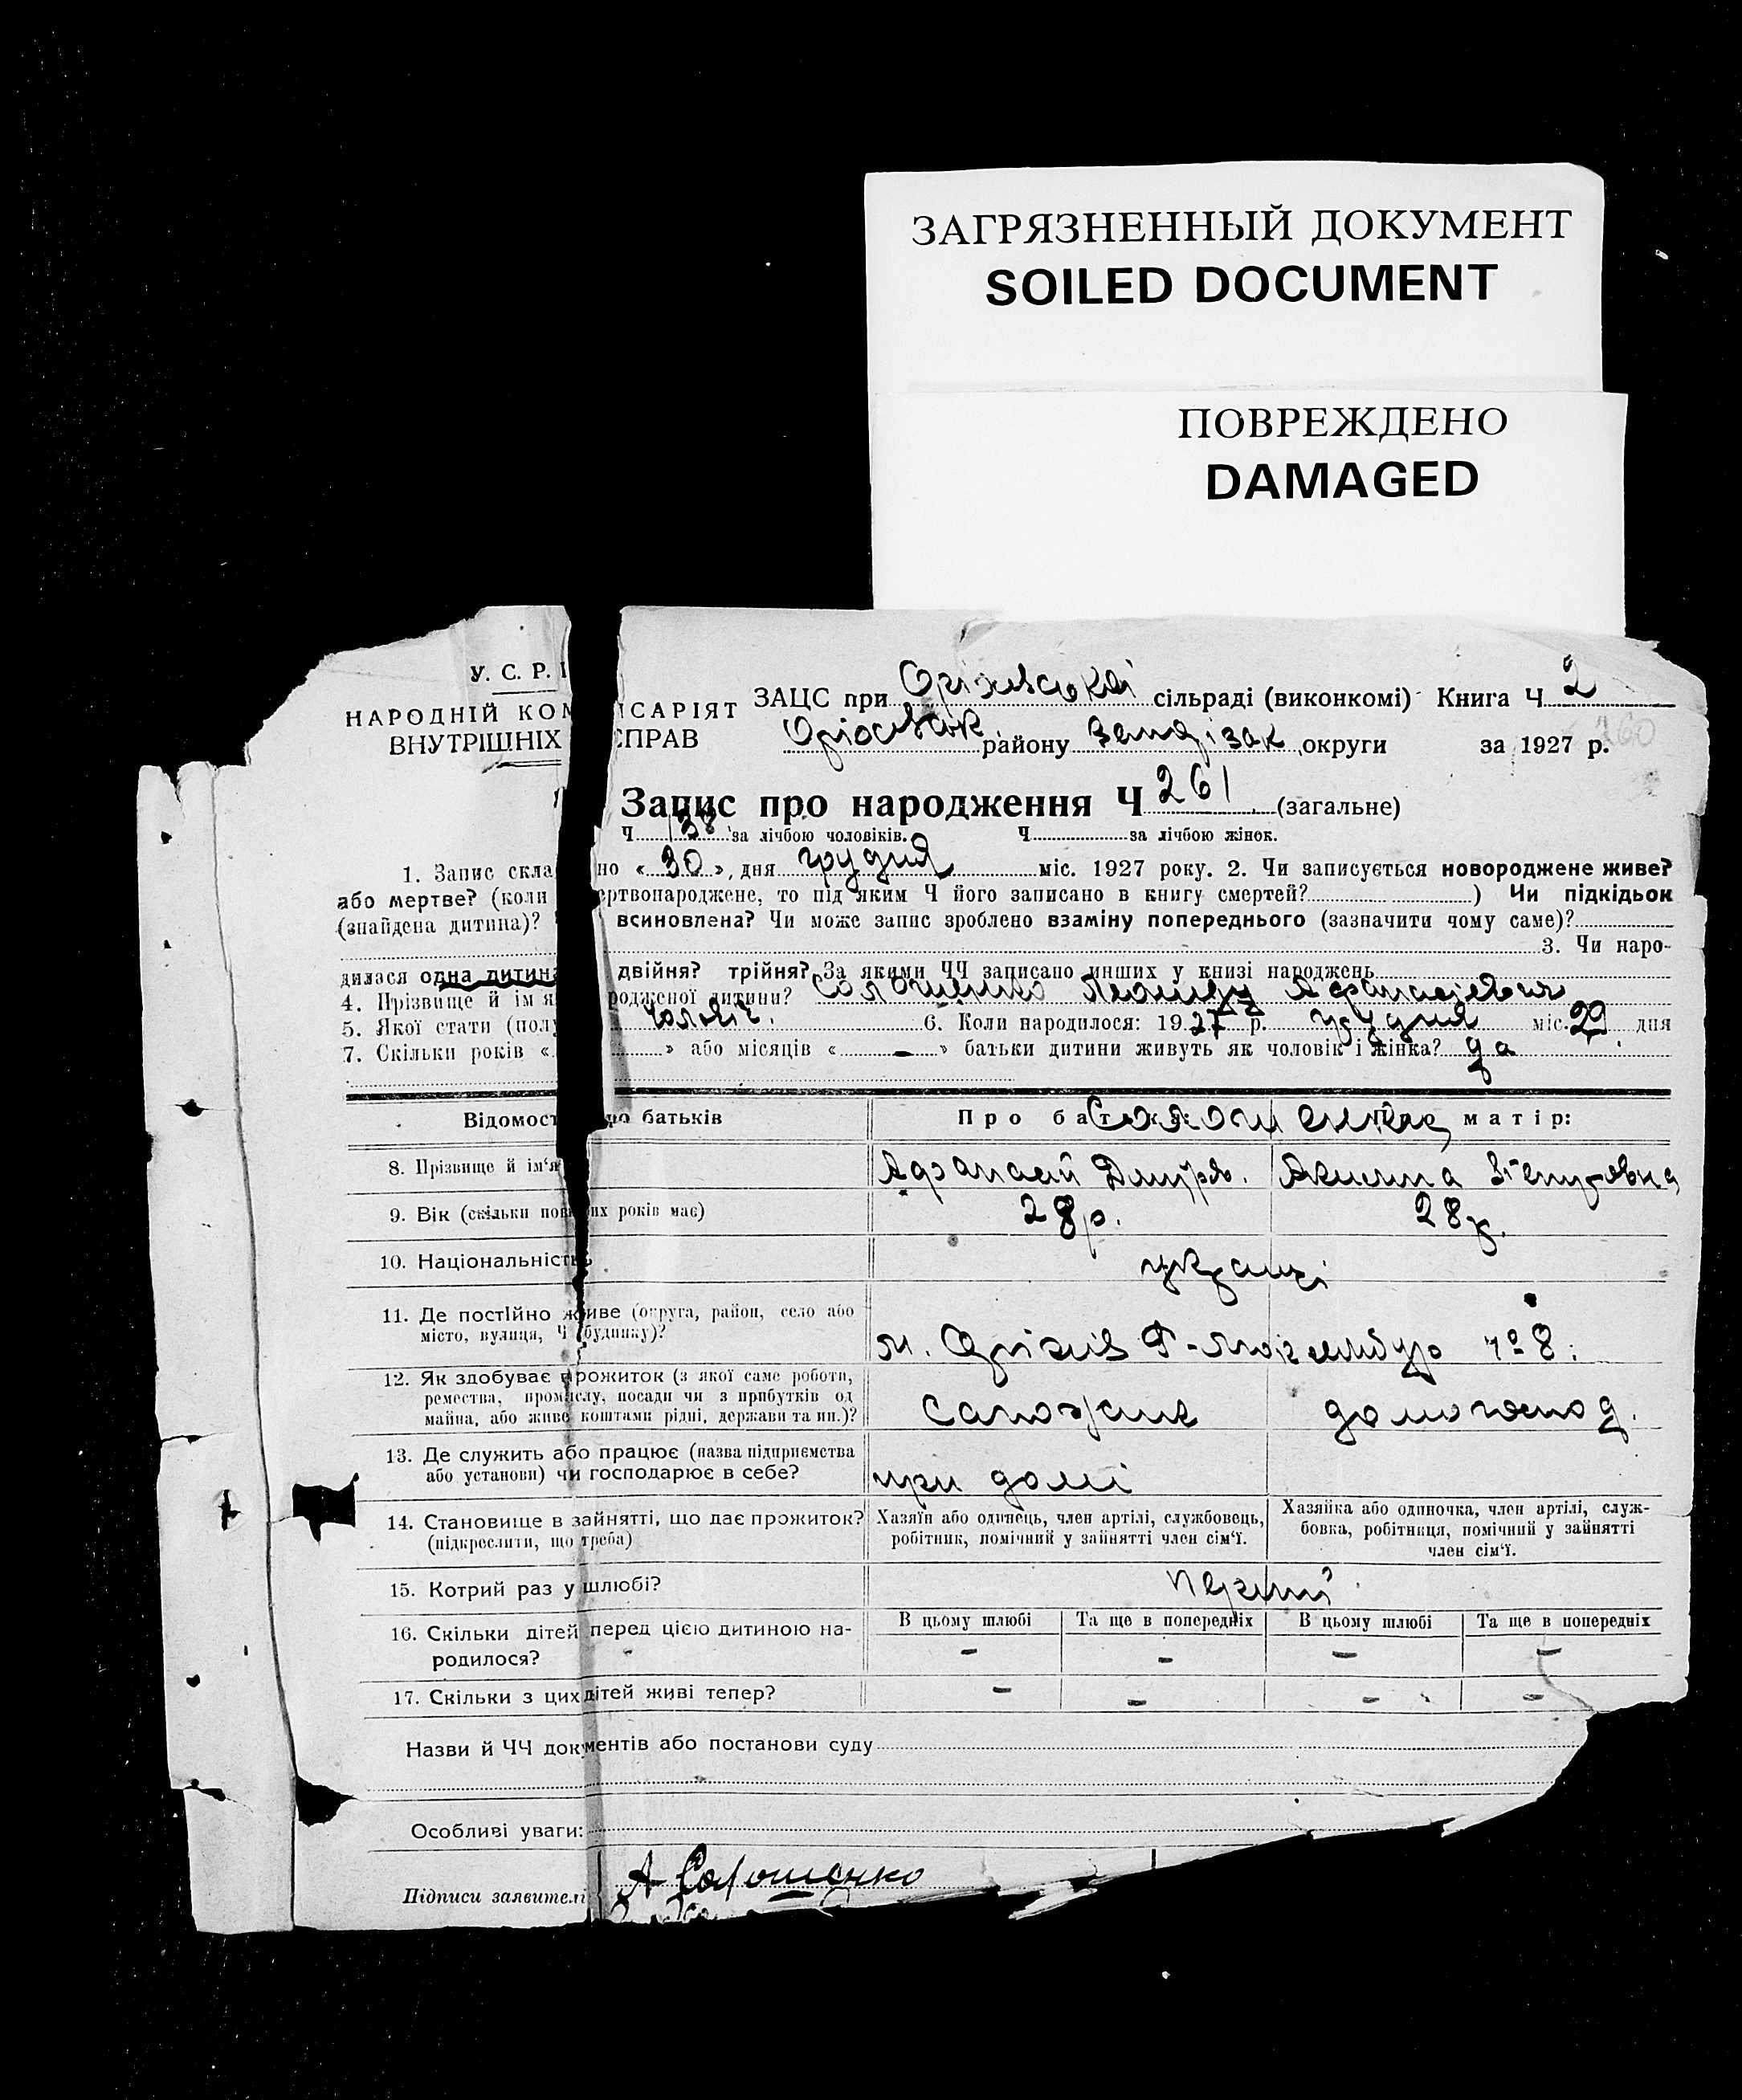 ЗАГРЯЗНЕННЫЙ ДОКУМЕНТ
SOILED DOCUMENT
ПОВРЕЖДЕНО
DAMAGED
У. С. Р. Р
НАРОДНІЙ КОМІСАРІЯТ
ВНУТРІШНІХ СПРАВ
ЗАЦС при Оріхивської сільраді (виконкомі) Книга Ч 2
району округи за 1927 р. 260
Запис про народження Ч 261 (загальне)
Ч 138 за лічбою чоловіків. Ч за лічбою жінок.
1. Запис скла но « 30 », дня грудня міс. 1927 року. 2. Чи записується новороджене живе?
або мертве? (коли ертвонароджене, то під яким Ч його записано в книгу смертей? ) Чи підкідьок
(знайдена дитина)? всиновлена? Чи може запис зроблено взаміну попереднього (зазначити чому саме)?
3. Чи наро-
дилася одна дитина двійня? трійня? За якими ЧЧ записано инших у книзі народжень
4. Прізвище й ім'я родженої дитини? Солошенко Леонид Афанасієвич
5. Якої стати (полу чоловіч. 6. Коли народилося: 1927 р. грудня міс. 29 дня
7. Скільки років « » або місяців « – » батьки дитини живуть як чоловік і жінка? да
Відомост про батьків Про батька: Про матір:
Солошенко
8. Прізвище й ім'я Афанасій Дмитр. Акилина
9. Вік (скільки повних років має) 28 р. 28 р.
10. Національність українці
11. Де постійно живе (округа, район, село або
місто, вулиця, Ч будинку)?
м. Оріхів № 8.
12. Як здобуває прожиток (з якої саме роботи,
ремества, промислу, посади чи з прибутків од
майна, або живе коштами рідні, держави та ин.)?
Сапожник домогоспод.
13. Де служить або працює (назва підприємства
або установи) чи господарює в себе?
при домі
14. Становище в зайнятті, що дає прожиток?
(підкреслити, що треба)
Хазяїн або одинець, член артілі, службовець,
робітник, помічний у зайнятті член сім'ї.
Хазяйка або одиночка, член артілі, служ-
бовка, робітниця, помічний у зайнятті
член сім'ї.
15. Котрий раз у шлюбі? перший
16. Скільки дітей перед цією дитиною на-
родилося?
В цьому шлюбі Та ще в попередніх В цьому шлюбі Та ще в попередніх
– – – –
17. Скільки з цих дітей живі тепер? – – – –
Назви й ЧЧ документів або постанови суду
Особливі уваги:
Підписи заявителі А Солошенко